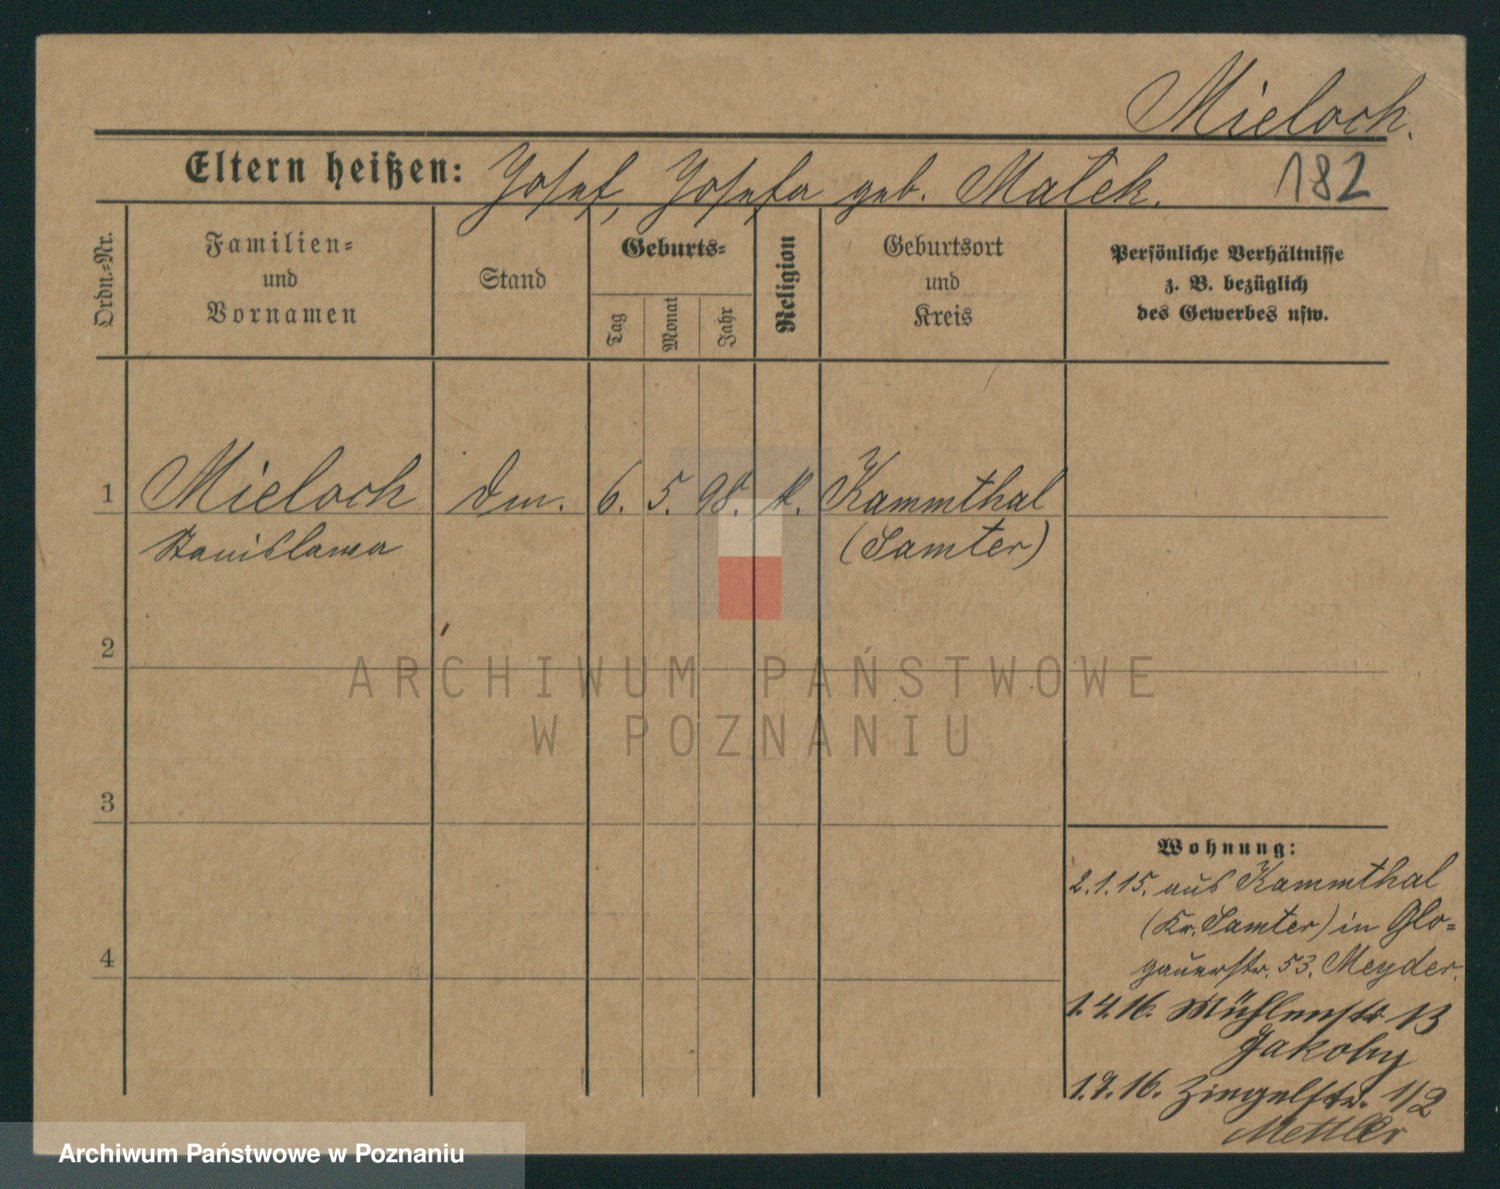 Mieloch.
Eltern heißen: Josef, Josefa geb. Malek. 182
Ordn.=Nr.
Familien=
und
Vornamen
Stand
Geburts=
Tag
Monat
Jahr
Religion
Geburtsort
und
Kreis
Persönliche Verhältnisse
z. B. bezüglich
des Gewerbes usw.
1 Mieloch dm. 6. 5. 98. k. Kammthal
Stanislawa (Samter)
2
ARCHIWUM PAŃSTWOWE
W POZNANIU
3
Wohnung:
2.1.15. aus Kammthal
(Kr. Samter) in Glo=
4
gauerstr. 53. Meyder.
1.4.16. Mühlenstr 13
Jakoby
1.7.16. Ziegelstr. 1/2
Mettler
Archiwum Państwowe w Poznaniu